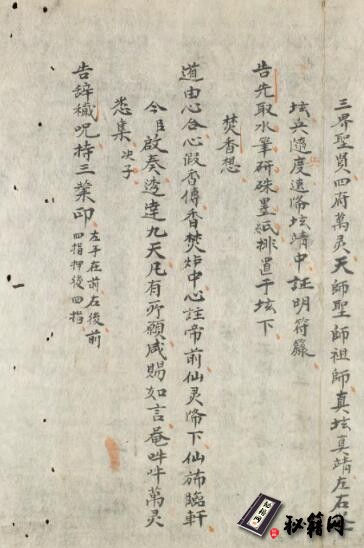 三界聖賢四府萬灵天師聖師祖師真坛真靖左右
坛兵随度遠降坛靖中証明符籙
兵
告先取水筆研硃墨紙排置于坛下
焚香想
道由心合心假香傳香焚炉中心註帝前仙灵降下仙斾臨軒
今臣啟奏迳達九天凡有所願咸賜如言奄吽吽萬灵
悉集 次子
告辞穢咒持三業印 左手在前右後前
四指押後四指
秘籍网
秘籍网